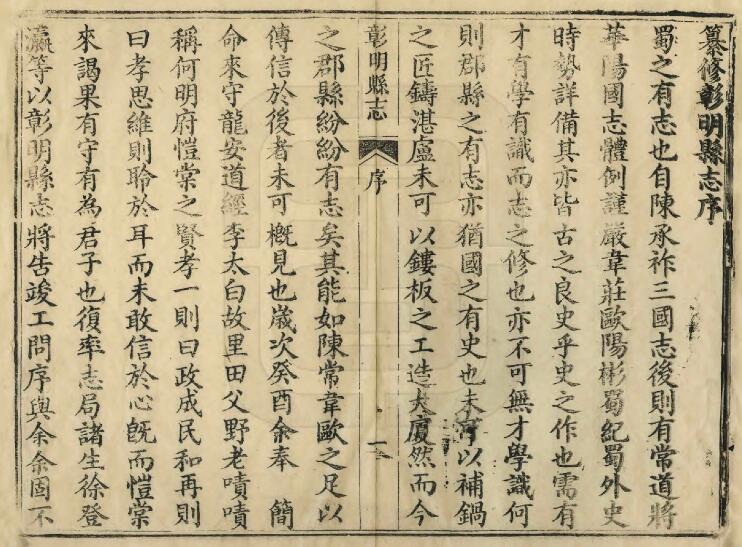 纂修彰明縣志序
蜀之有志也自陳承祚三國志後則有常道將
華陽國志體例謹嚴韋莊歐陽彬蜀紀蜀外史
時勢詳備其亦皆古之良史乎史之作也需有
才有學有識而志之修也亦不可無才學識何
則郡縣之有志亦猶國之有史也未可以補鍋
之匠鑄湛盧未可以鏤板之工造大廈然而今
彰明縣志
序
一
之郡縣紛紛有志矣其能如陳常韋歐之足以
傳信於後者未可概見也歲次癸酉余奉 簡
命來守龍安道經李太白故里田父野老嘖嘖
稱何明府愷棠之賢孝一則曰政成民和再則
曰孝思維則聆於耳而未敢信於心既而愷棠
來謁果有守有為君子也復率志局諸生徐登
瀛等以彰明縣志將告竣工問序與余余固不